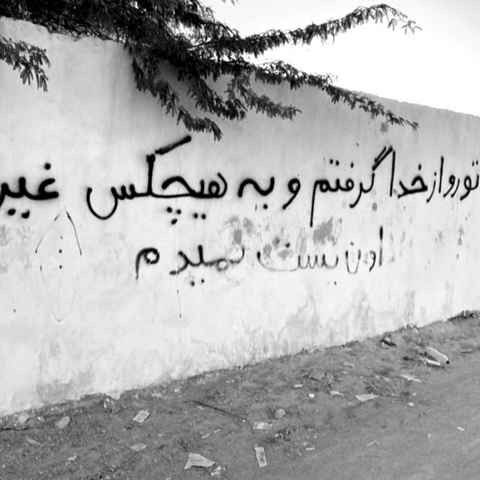 تورو از خدا گرفتم و به هیچکس غیر
اون پست نمیدم